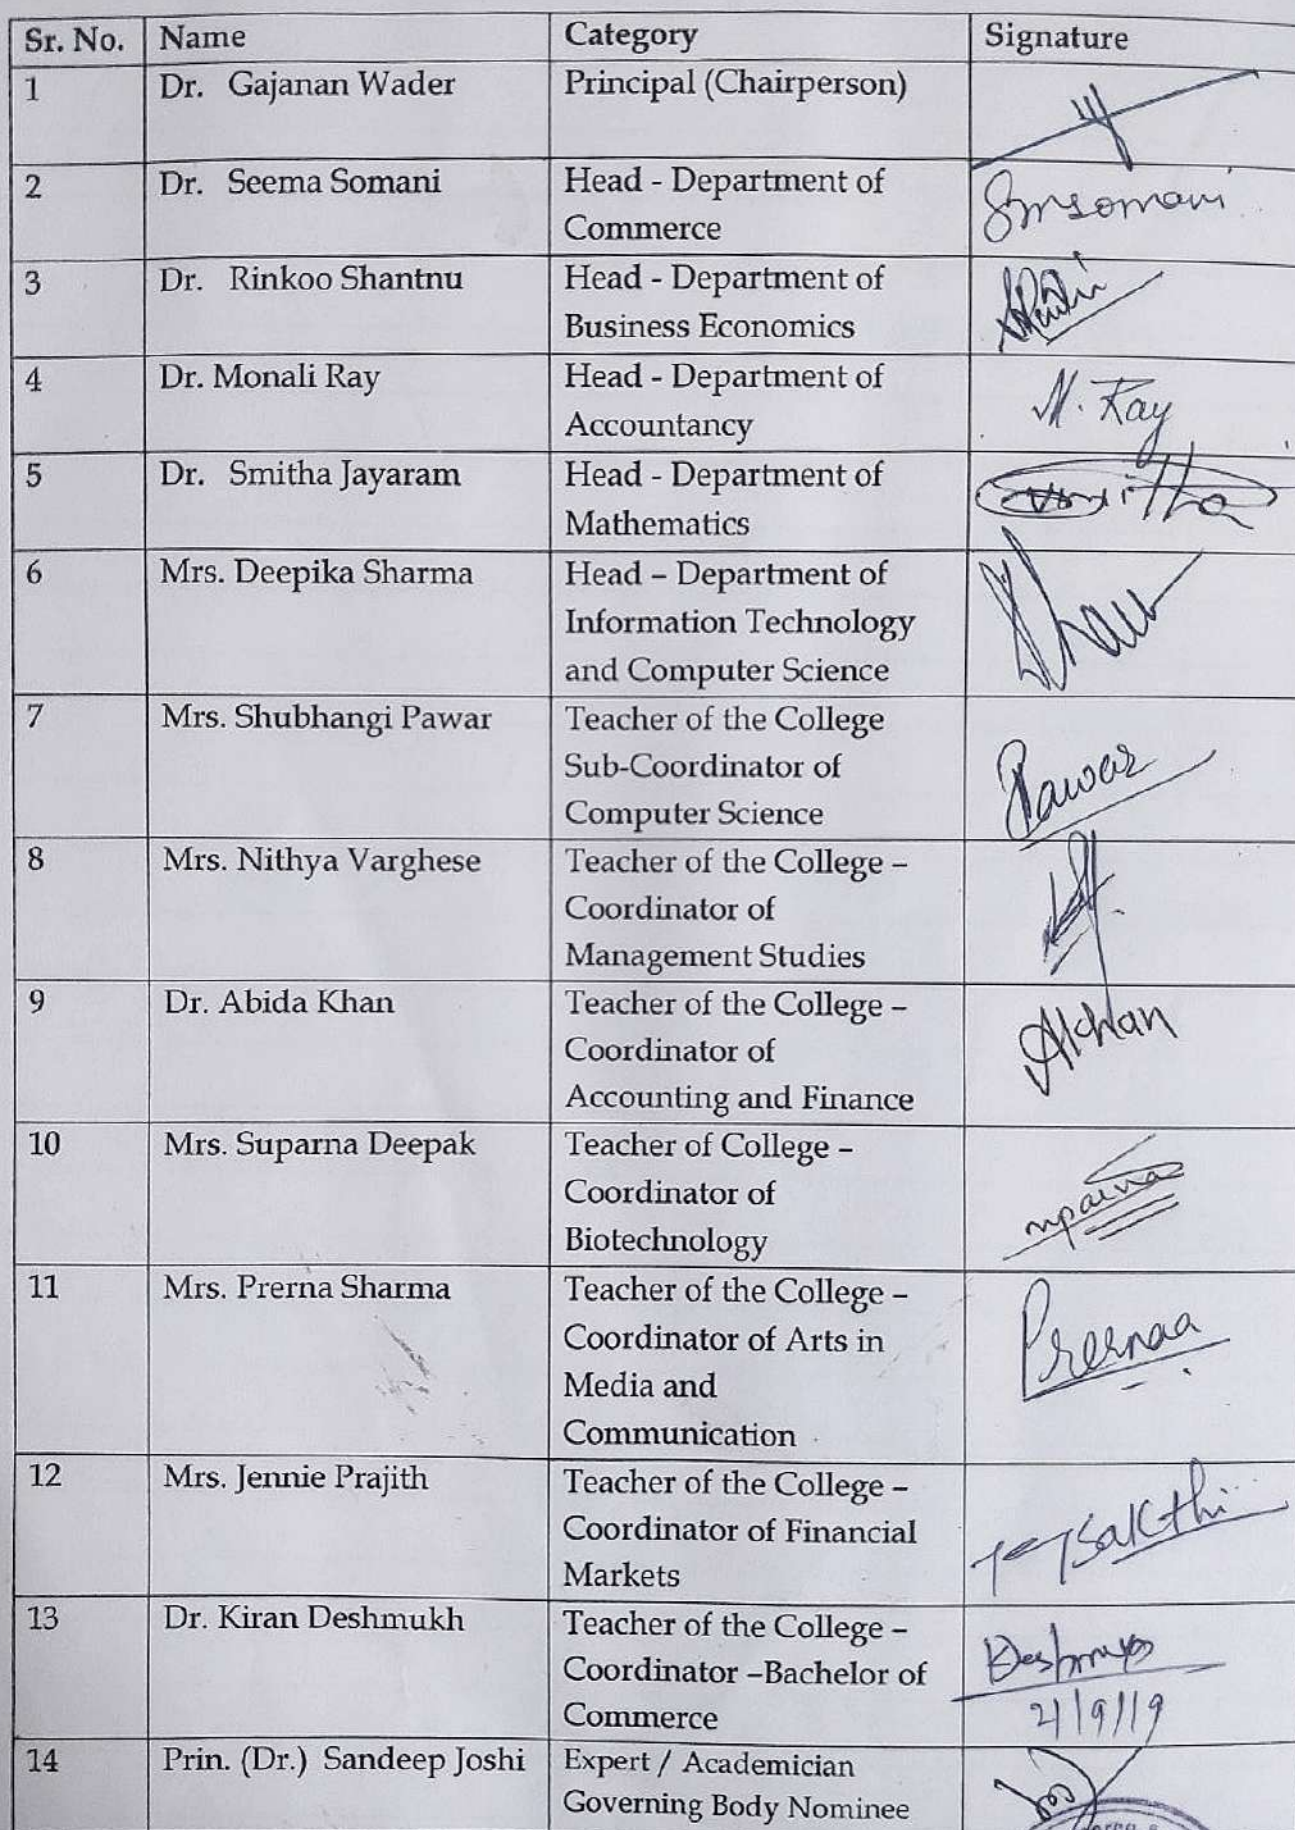 Sr. No. Name Category Signature
1 Dr. Gajanan Wader Principal (Chairperson)
2 Dr. Seema Somani Head - Department of Smsomani
Commerce
3 Dr. Rinkoo Shantnu Head - Department of
Business Economics
4 Dr. Monali Ray Head - Department of M. Ray
Accountancy
5 Dr. Smitha Jayaram Head - Department of
Mathematics
6 Mrs. Deepika Sharma Head – Department of
Information Technology
and Computer Science
7 Mrs. Shubhangi Pawar Teacher of the College
Sub-Coordinator of Pawar
Computer Science
8 Mrs. Nithya Varghese Teacher of the College –
Coordinator of
Management Studies
9 Dr. Abida Khan Teacher of the College – AKhan
Coordinator of
Accounting and Finance
10 Mrs. Suparna Deepak Teacher of College –
Coordinator of
Biotechnology
11 Mrs. Prerna Sharma Teacher of the College –
Coordinator of Arts in Preernaa
Media and
Communication
12 Mrs. Jennie Prajith Teacher of the College –
Coordinator of Financial Sakthi
Markets
13 Dr. Kiran Deshmukh Teacher of the College –
Coordinator –Bachelor of
Commerce 21/9/19
14 Prin. (Dr.) Sandeep Joshi Expert / Academician
Governing Body Nominee